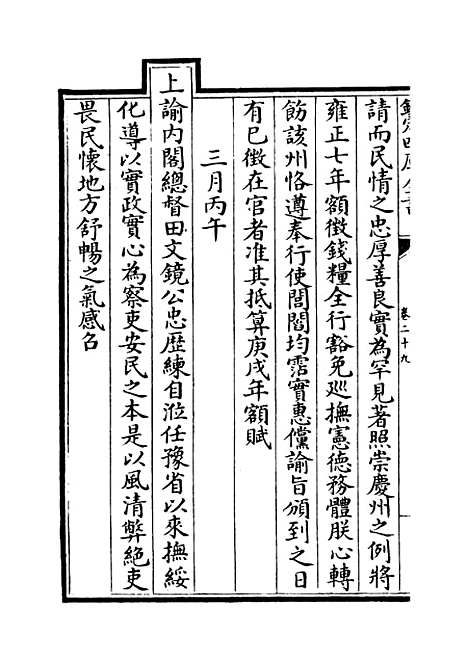 欽定四庫全書
卷二十九
請而民情之忠厚善良實為罕見著照崇慶州之例將
雍正七年額徵錢糧全行豁免廵撫憲德務體朕心轉
飭該州恪遵奉行使閭閻均霑實惠儻諭旨頒到之日
有已徵在官者准其抵算庚戌年額賦
三月丙午
上諭內閣總督田文鏡公忠歷練自涖任豫省以來撫綏
化導以實政實心為察吏安民之本是以風清弊絕吏
畏民懷地方舒暢之氣感召